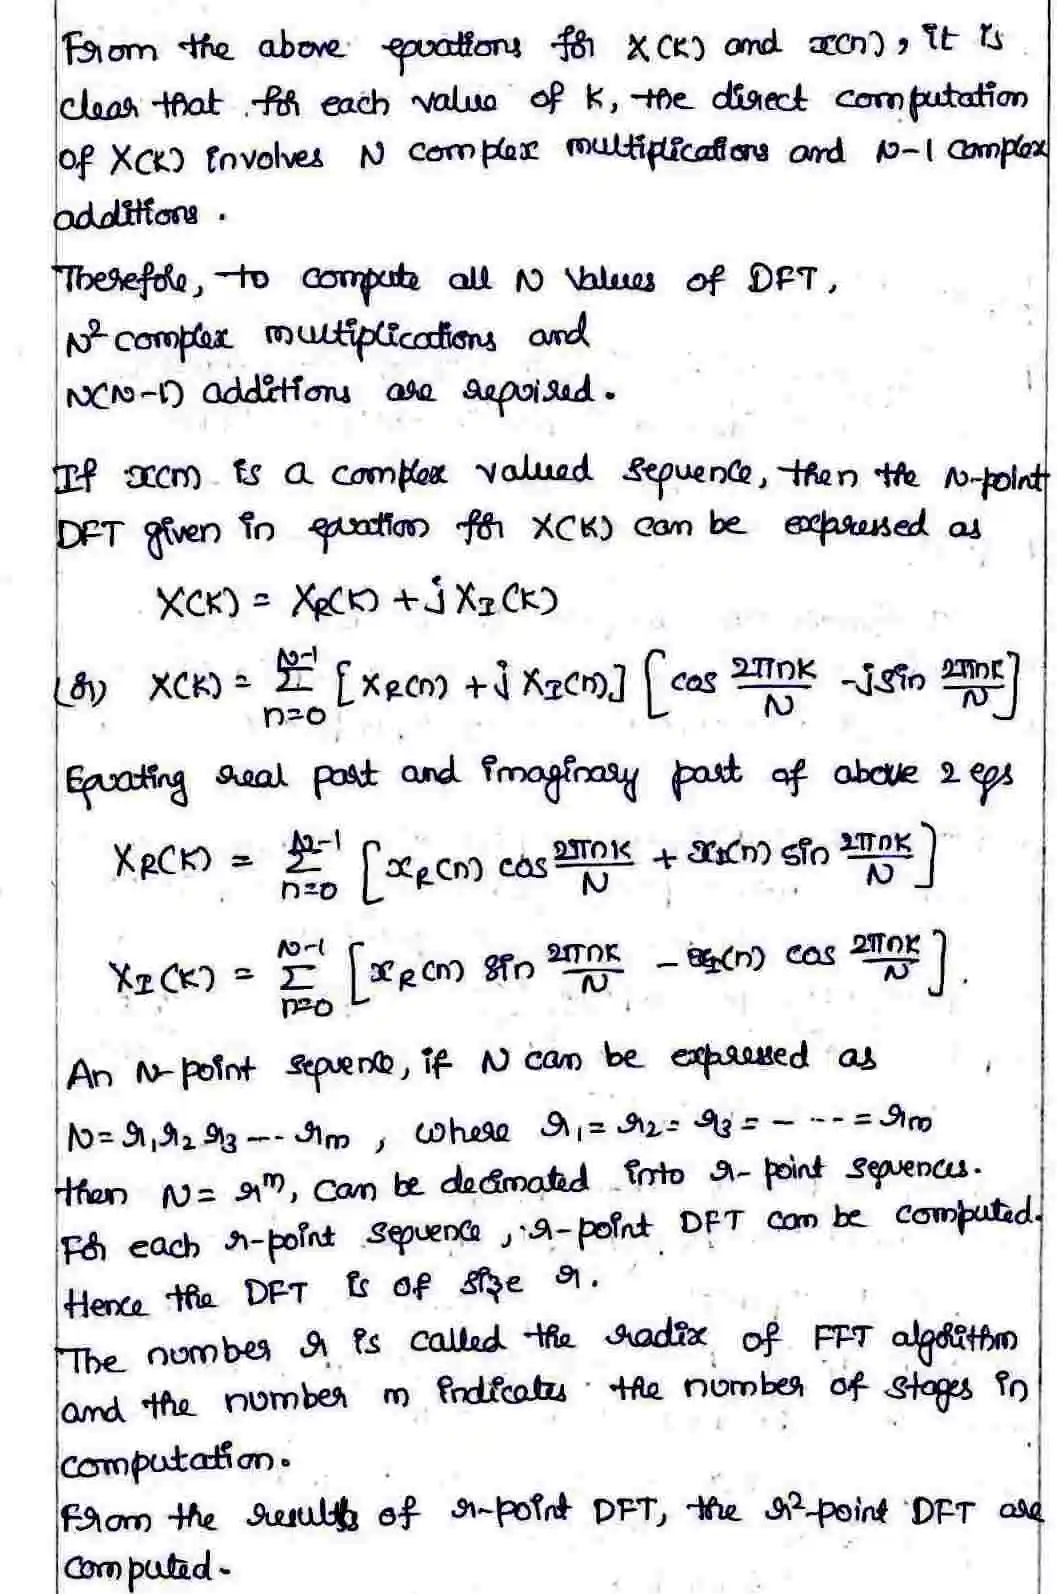 From the above equations for X(K) and x(n), it is
clear that for each value of K, the direct computation
of X(K) involves N complex multiplications and N-1 complex
additions.
Therefore, to compute all N values of DFT,
N² complex multiplications and
N(N-1) additions are required.
If x(n) is a complex valued sequence, then the N-point
DFT given in equation for X(K) can be expressed as
X(K) = X_R(K) + j X_I(K)
(or) X(K) = Σ_{n=0}^{N-1} [X_R(n) + j X_I(n)] [cos 2πnK/N - j sin 2πnK/N]
Equating real part and imaginary part of above 2 eqs
X_R(K) = Σ_{n=0}^{N-1} [x_R(n) cos 2πnK/N + x_I(n) sin 2πnK/N]
X_I(K) = Σ_{n=0}^{N-1} [x_R(n) sin 2πnK/N - x_I(n) cos 2πnK/N].
An N-point sequence, if N can be expressed as
N = r₁ r₂ r₃ --- r_m, where r₁ = r₂ = r₃ = - --- = r_m
then N = r^m, can be decimated into r-point sequences.
For each r-point sequence, r-point DFT can be computed.
Hence the DFT is of size r.
The number r is called the radix of FFT algorithm
and the number m indicates the number of stages in
computation.
From the results of r-point DFT, the r²-point DFT are
computed.